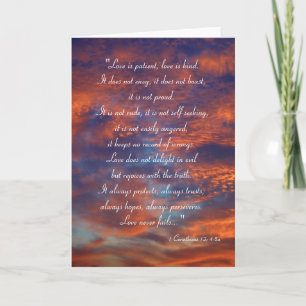 "Love is patient, love is kind.
It does not envy, it does not boast,
it is not proud.
It is not rude, it is not self seeking,
it is not easily angered,
it keeps no record of wrongs.
Love does not delight in evil
but rejoices with the truth.
It always protects, always trusts,
always hopes, always perseveres.
Love never fails..."
1 Corinthians 13: 4-8a